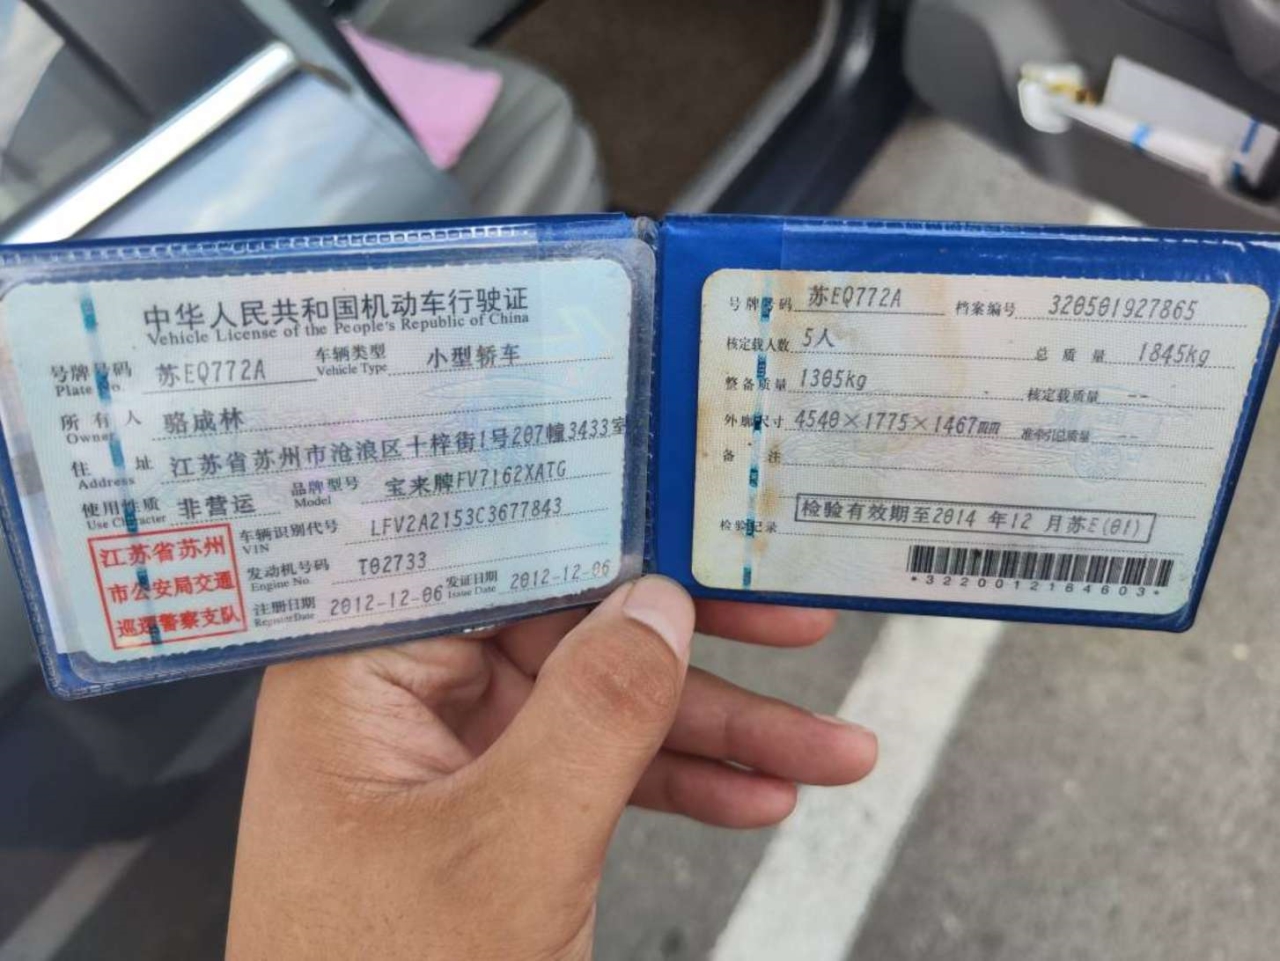 中华人民共和国机动车行驶证
Vehicle License of the People's Republic of China
号牌号码 苏EQ772A 车辆类型 小型轿车
Plate No. Vehicle Type
所有人 骆成林
Owner
住址 江苏省苏州市沧浪区十梓街1号207幢3433室
Address
使用性质 非营运 品牌型号 宝来牌FV7162XATG
Use Character Model
江苏省苏州
市公安局交通
巡逻警察支队
车辆识别代号 LFV2A2153C3677843
VIN
发动机号码 T02733
Engine No.
注册日期 2012-12-06 发证日期 2012-12-06
Register Date Issue Date
号牌号码 苏EQ772A 档案编号 320501927865
核定载人数 5人 总质量 1845kg
整备质量 1305kg 核定载质量 --
外廓尺寸 4540×1775×1467mm 准牵引总质量 --
备注
检验记录 检验有效期至2014 年12 月苏E(01)
*3220012164603*